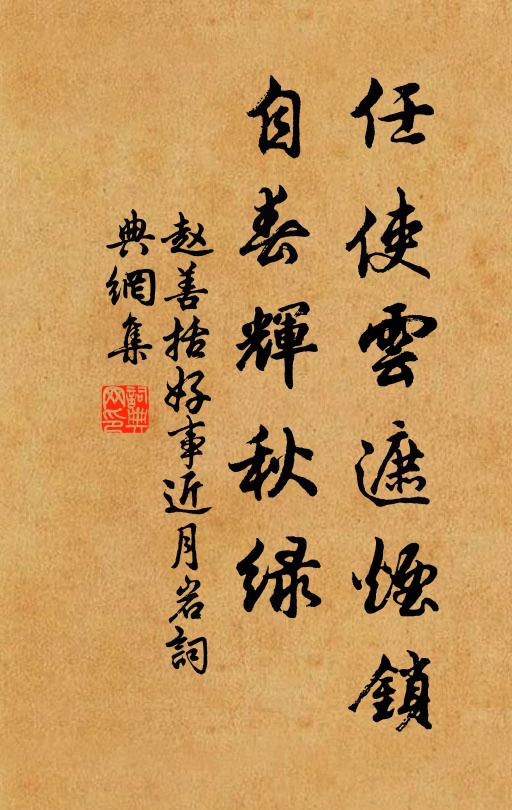 任使雲遮煙鎖
自春輝秋緑
赵善括好事近月岩詞
典網集
詞典网印